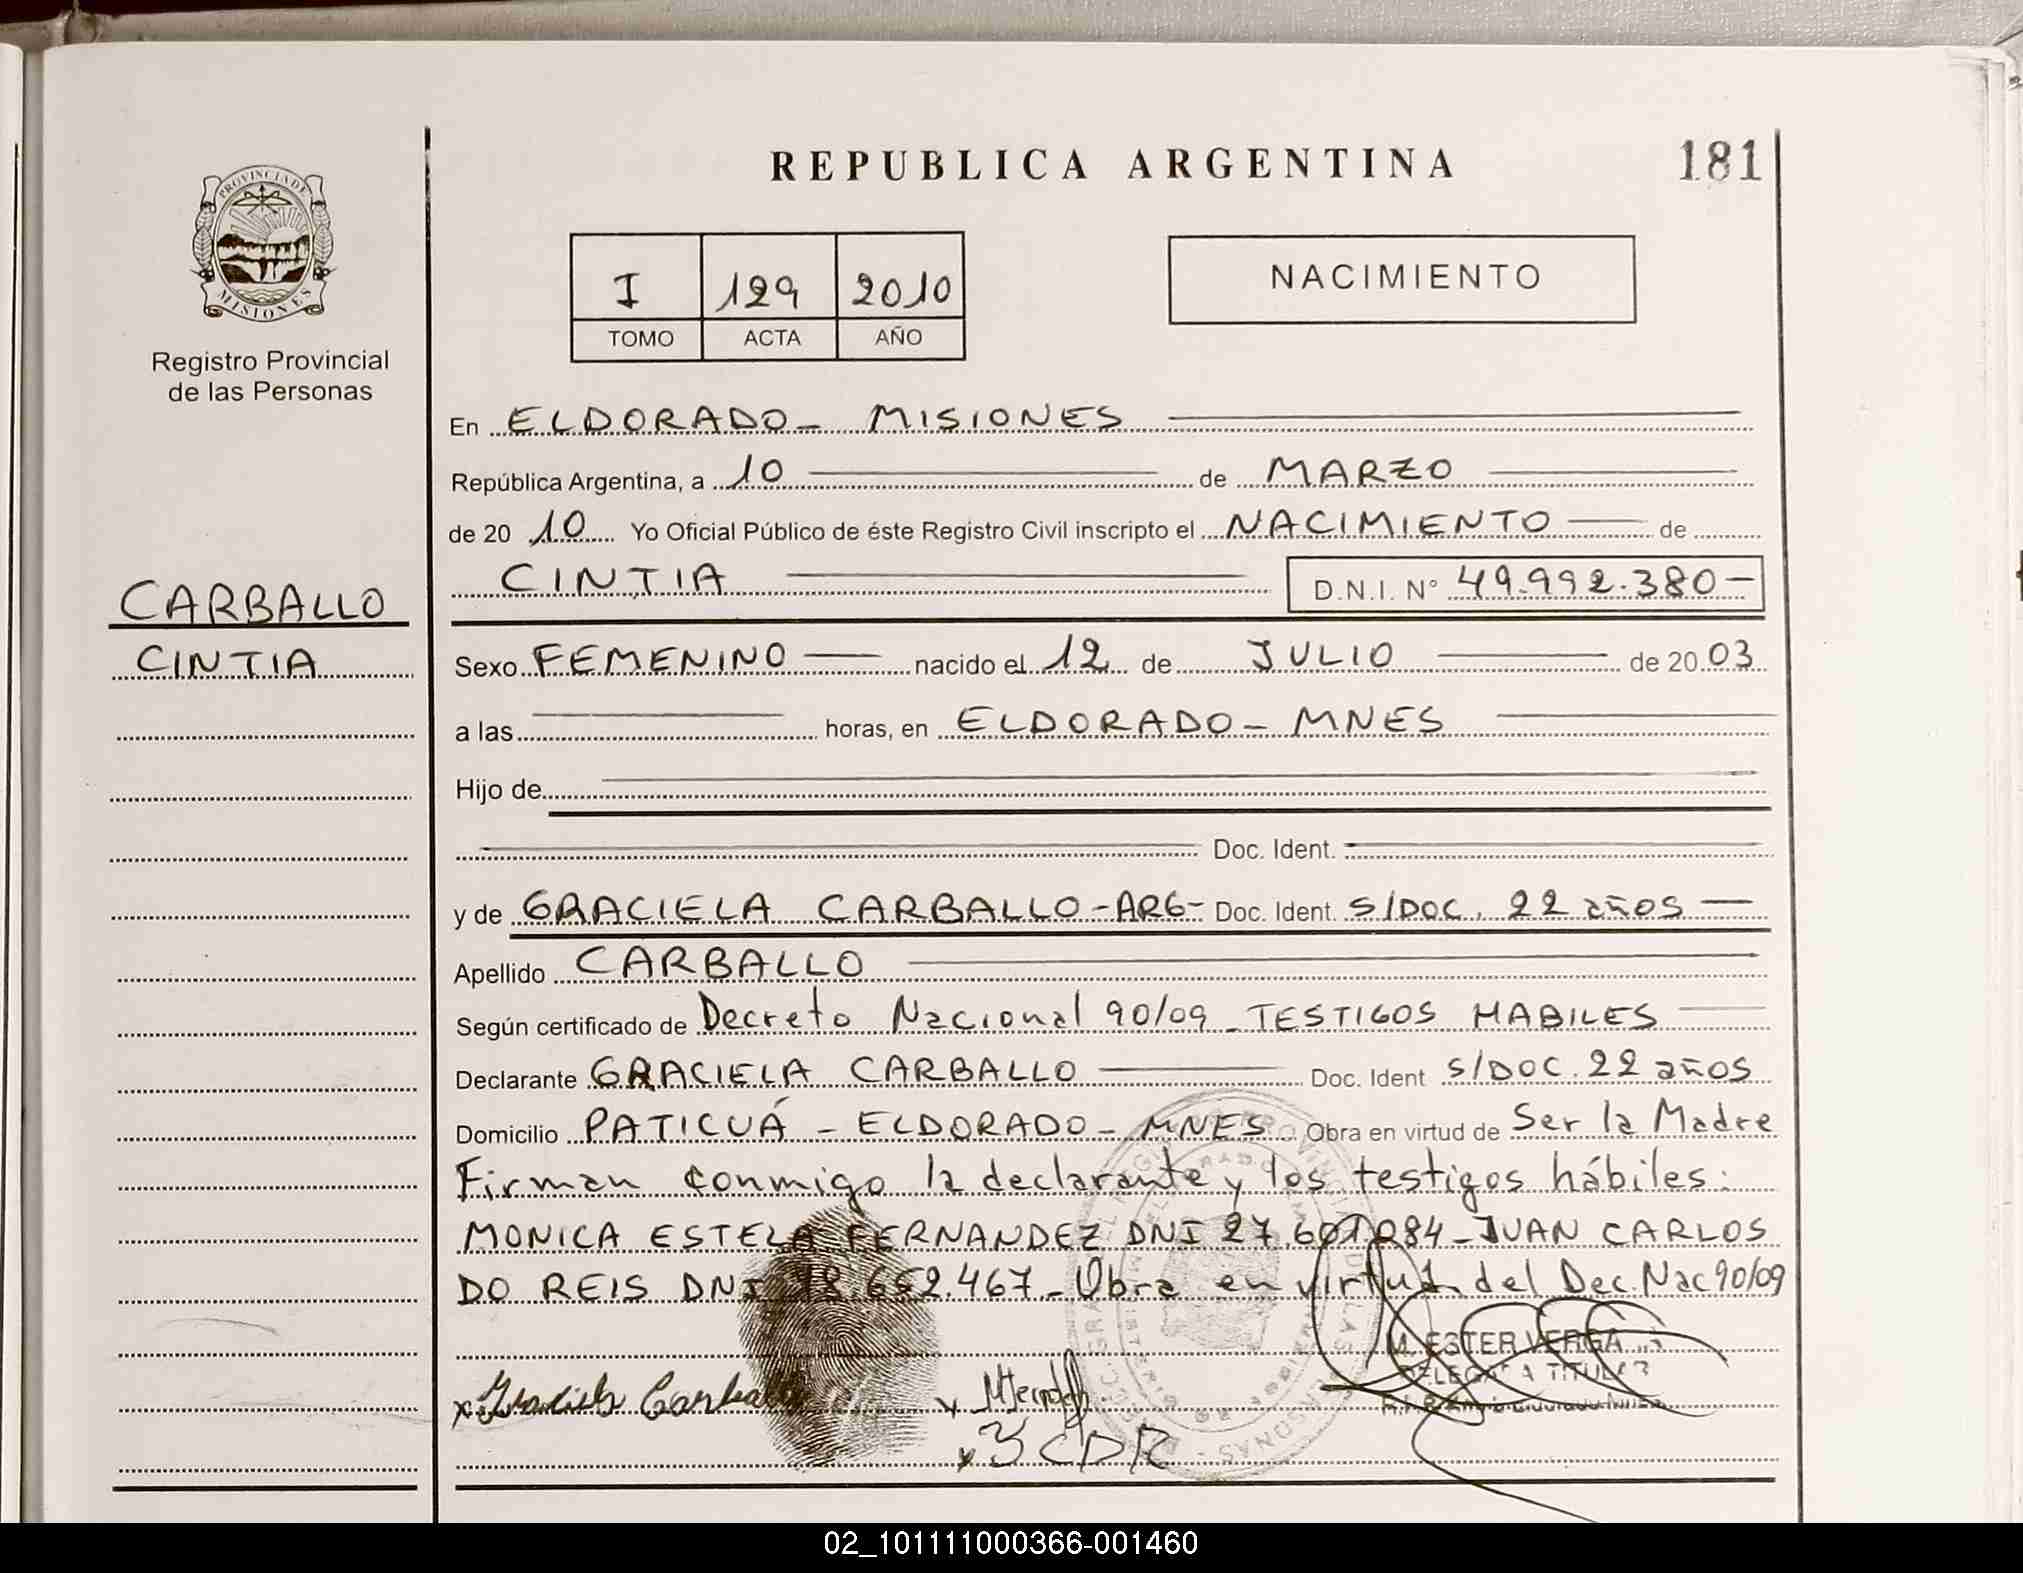 REPUBLICA ARGENTINA
181
PROVINCIA DE
MISIONES
Registro Provincial
de las Personas
I 129 2010
TOMO ACTA AÑO
NACIMIENTO
En ELDORADO - MISIONES
República Argentina, a 10 de MARZO
de 20 10 Yo Oficial Público de éste Registro Civil inscripto el NACIMIENTO de
CINTIA D.N.I. N° 49.992.380-
CARBALLO
CINTIA
Sexo FEMENINO nacido el 12 de JULIO de 20 03
a las horas, en ELDORADO - MNES
Hijo de
Doc. Ident.
y de GRACIELA CARBALLO - ARG - Doc. Ident. S/DOC. 22 años
Apellido CARBALLO
Según certificado de Decreto Nacional 90/09 - TESTIGOS HABILES
Declarante GRACIELA CARBALLO Doc. Ident S/DOC. 22 años
Domicilio PATICUÁ - ELDORADO - MNES Obra en virtud de Ser la Madre
Firman conmigo la declarante y los testigos hábiles:
MONICA ESTELA FERNANDEZ DNI 27.601.084 - JUAN CARLOS
DO REIS DNI 18.652.467 - Obra en virtud del Dec. Nac 90/09
M. ESTER VERGA
DELEGADA TITULAR
x Graciela Carballo
x JCDR
02_101111000366-001460